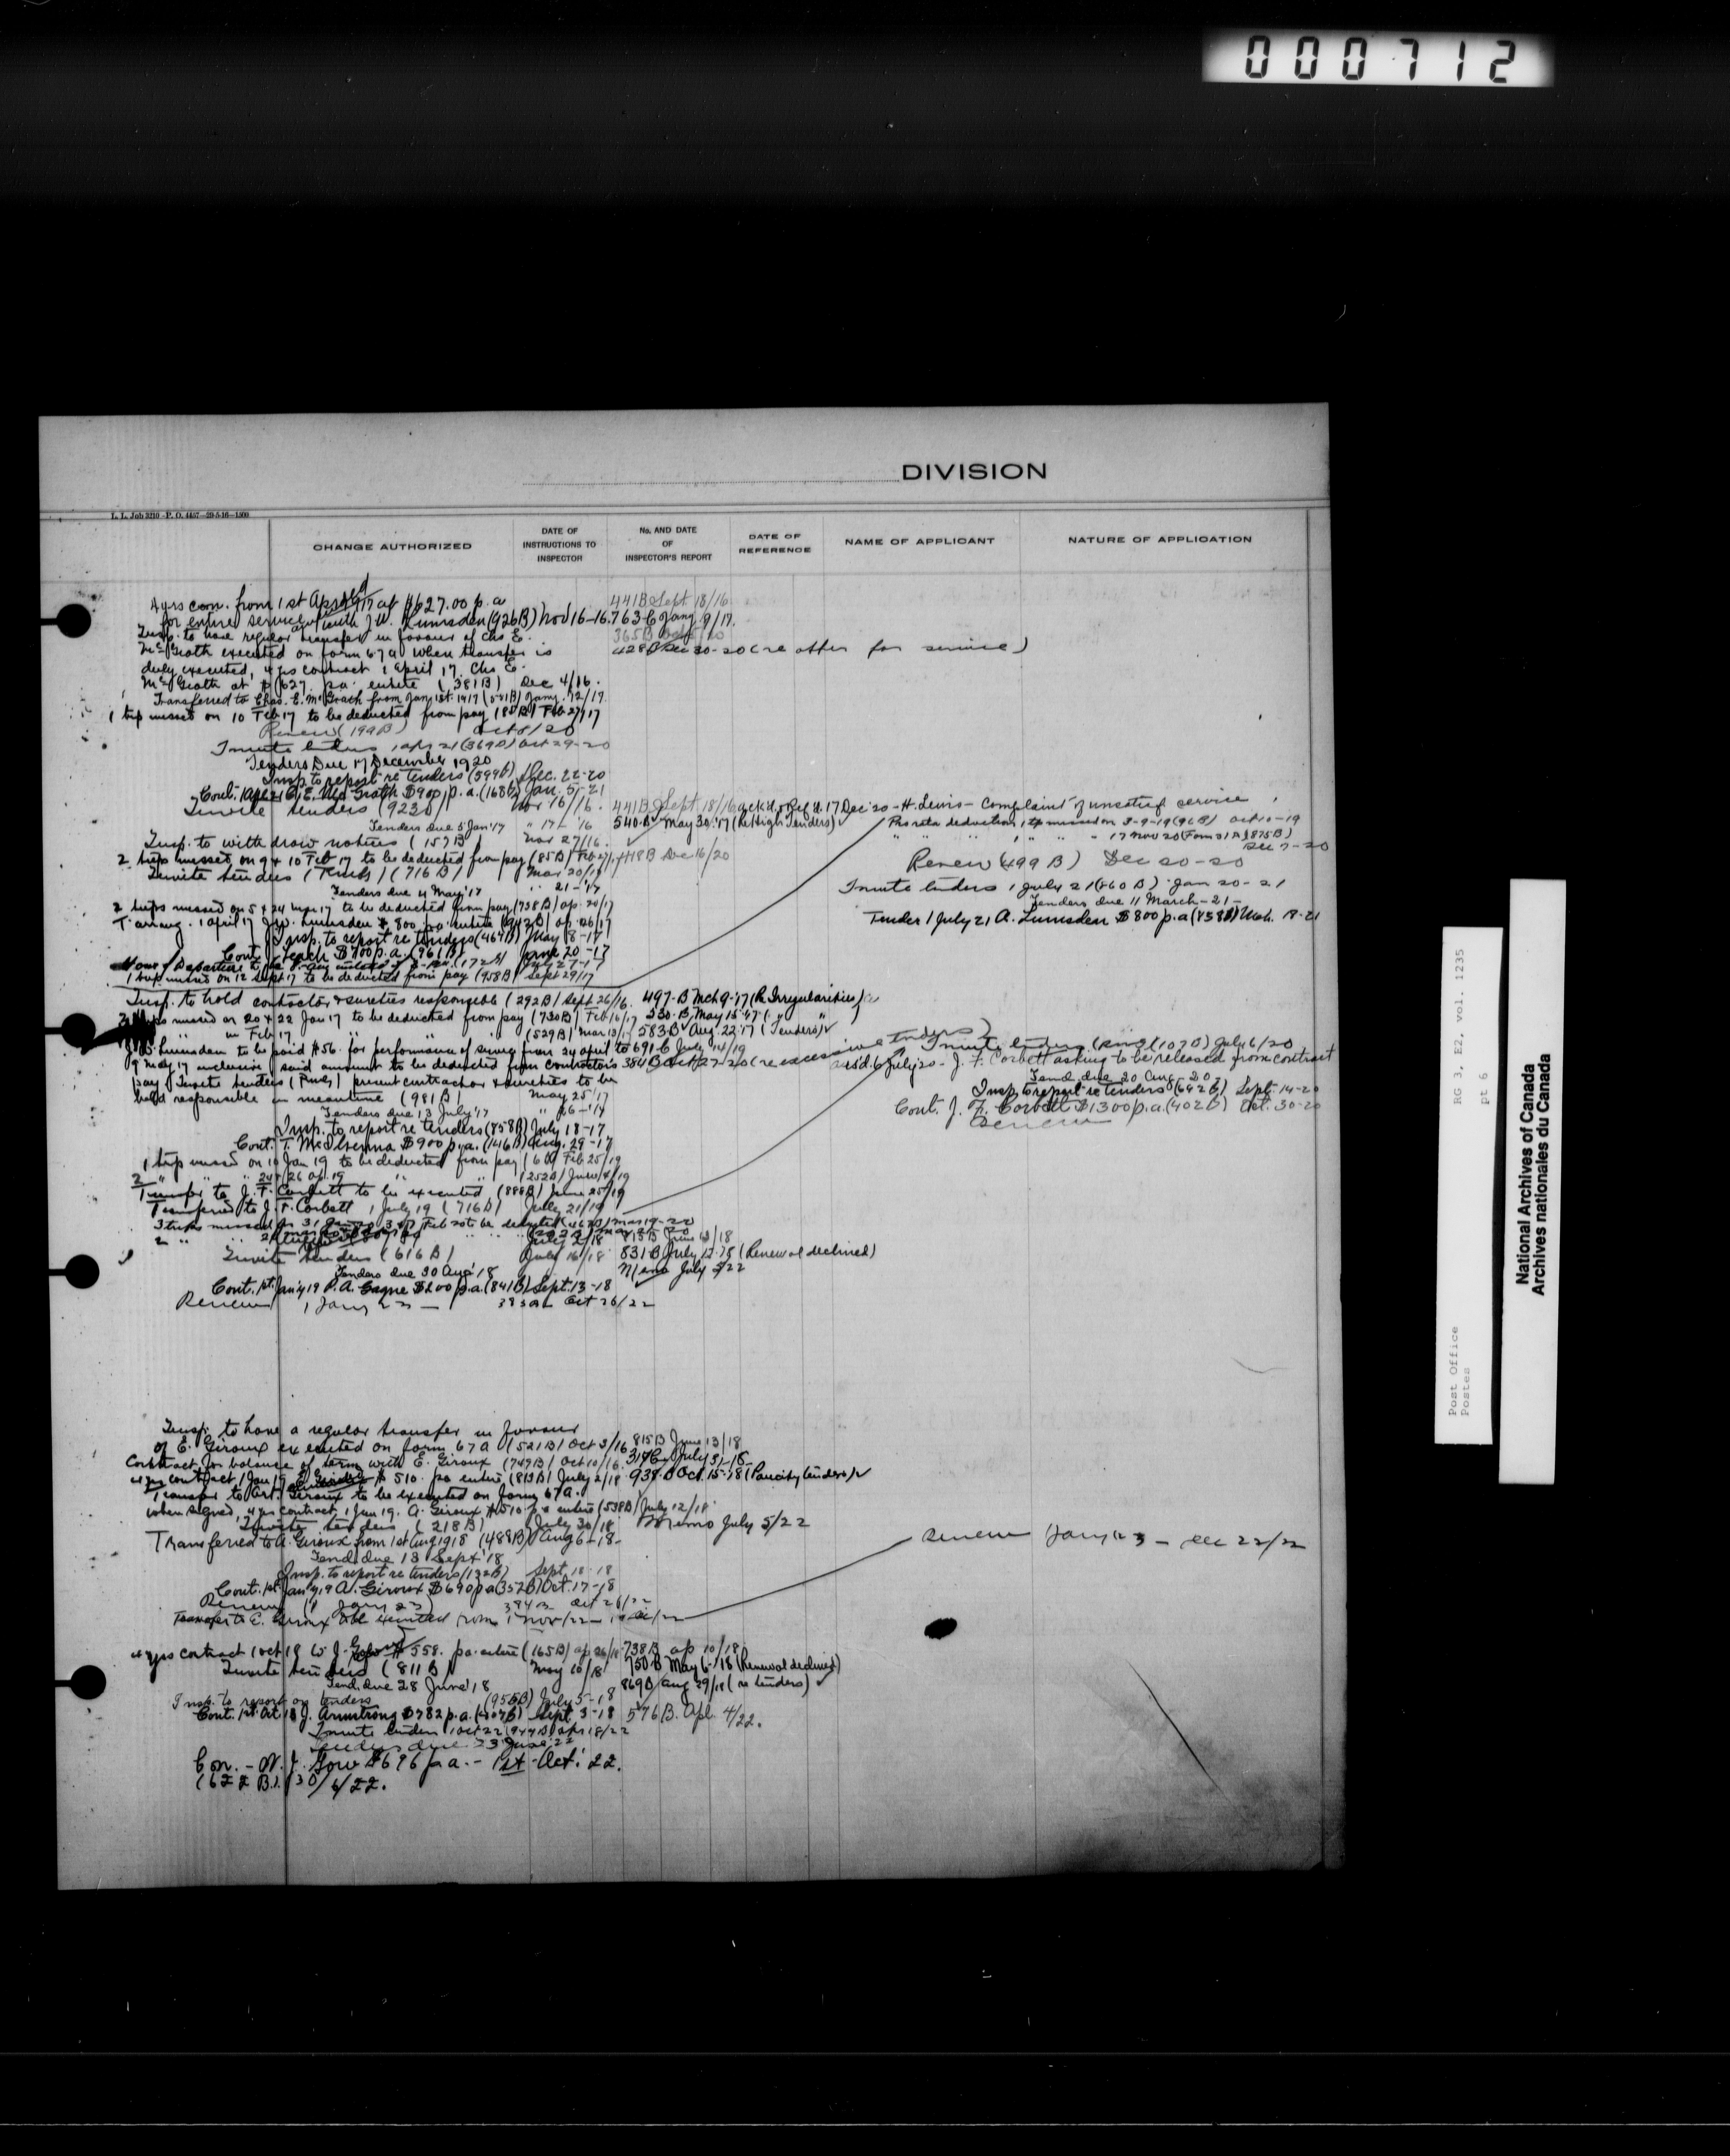 000712
DIVISION
L. L. Job 3210 - P. O. 4457—29-5-16—1500
CHANGE AUTHORIZED
DATE OF INSTRUCTIONS TO INSPECTOR
No. AND DATE OF INSPECTOR'S REPORT
DATE OF REFERENCE
NAME OF APPLICANT
NATURE OF APPLICATION
4 yrs con. from 1st April 17 at $627.00 p.a 441B Sept 18/16
for entire service with J.W. Lumsden (926B) Nov 16-16. 763 C Jany 9/17.
Insp. to have regular transfer in favour of Chs E.
McGrath executed on form 67a when transfer is 428B Dec 30-20 (re offer for service)
duly executed, 4 yrs contract 1 April 17. Chs E.
McGrath at $627 pa. entire (381B) Dec 4/16.
Transferred to Chas. E. McGrath from Jany 1st 1917 (521B) Jany. 12/17
1 trip missed on 10 Feb 17 to be deducted from pay (84B) Feb 27/17
Renew (199B) Oct 8/20
Invite tenders 1 apr 21 (369B) Oct 29-20
Tenders Due 17 December 1920
Insp. to report re tenders (599B) Dec. 22-20
Cont. 1 Apl 21 C.E. McGrath $900 p.a. (168B) Jan. 5-21
Invite tenders (923B) Nov 16/16. 441B Sept 18/16
ack'd. & Ref'd. 17 Dec '20 - H. Lewis - Complaint of unsatisf. service
Tenders due 5 Jan '17 " 17 - '16 540-B May 30-'17 (Re High Tenders)
Pro rata deduction, 1 trip missed on 3-9-19 (96B) Oct 10-19
Insp. to withdraw notices (157B) Nov 27/16.
" " " " " 17 Nov 20 (Form 31A) (875B) Dec 7-20
2 trips missed on 9 & 10 Feb 17 to be deducted from pay (85B) Feb 27/17 418B Dec 16/20
Renew (499B) Dec 20-20
Invite tenders (Rnds) (716B) Mar 20/17
Tenders due 4 May '17 " 21-'17
Invite tenders 1 July 21 (860B) Jan 20-21
Tenders due 11 March-21-
2 trips missed on 5 & 24 Mar 17 to be deducted from pay (738B) ap. 20/17
Tender 1 July 21 A. Lumsden $800 p.a (858B) Mch. 18-21
T. arrang. 1 april 17 J.W. Lumsden $800 pa entire (942B) ap. 26/17
Insp. to report re tenders (464B) May 18-17
Cont. J. Leach $700 p.a. (961B) June 20-17
1 trip missed on 12 Sept 17 to be deducted from pay (958B) Sept 29/17
Insp. to hold contractor & sureties responsible (292B) Sept 26/16. 497-B Mch 9-'17 (Re Irregularities)
trips missed on 20 & 22 Jan 17 to be deducted from pay (730B) Feb 16/17 530-B May 15-'17 ( " )
" in Feb 17 (529B) Mar 13/17 583B Aug. 22-17 (Tenders)
J.W. Lumsden to be paid $56. for performance of service from 24 april to 691 C July 14/19
Invite tenders (Rnds) (107B) July 6/20
9 May 17 inclusive said amount to be deducted from contractors 384B Oct 27-20 (re excessive tenders)
ack'd. 6 July 20 - J. F. Corbett asking to be released from contract
pay. Invite tenders (Rnds) present contractor & sureties to be
Tend. due 20 Aug-20-
held responsible in meantime (981B) May 25/17
Insp. to report re tenders (642B) Sept. 14-20
Tenders due 13 July '17 " 26-'17
Cont. J. F. Corbett $1300 p.a. (402B) Oct. 30-20
Insp. to report re tenders (858B) July 18-17
Renew
Cont. T. McIlvenna $900 p.a. (146B) Aug. 29-17
1 trip missed on 10 Jan 19 to be deducted from pay (6B) Feb 25/19
2 " " 24 & 26 ap. 19 " (252B) June 4/19
Transfer to J. F. Corbett to be executed (888B) June 25/19
Transferred to J. F. Corbett 1 July 19 (716B) July 21/19
July 2/18 813B June 13/18
Invite tenders (616B) July 16/18 831B July 12-18 (Renewal declined)
Tenders due 30 Aug '18 Memo July 5/22
Cont. 1st Jan'y 19 P. A. Gagne $200 p.a. (841B) Sept. 13-18
Renew 1 Jany 23 - 393B Oct 26/22
Insp. to have a regular transfer in favour
of E. Giroux executed on form 67a (521B) Oct 3/16 815B June 13/18
Contract for balance of term with E. Giroux (749B) Oct 10/16. 317C July 3/-18-
4 yrs contract 1 Jan 19 E. Giroux $510. pa entire (813B) July 2/18 938-B Oct. 15-18 (Paucity tenders)
Transfer to Art. Giroux to be executed on form 67a.
when signed, 4 yrs contract 1 Jan 19. A. Giroux $510 pa entire (538B) July 12/18
Invite tenders (218B) July 30/18 Memo July 5/22
Transferred to A. Giroux from 1st Aug 1918 (488B) Aug 6-18-
Renew 1 Jany 23 - Dec 22/22
Tend. due 13 Sept '18
Insp. to report re tenders (132B) Sept. 18-18
Cont. 1st Jan'y 19 A. Giroux $690 p a (357B) Oct. 17-18
Renew (1 Jany 23) 394B Oct 26/22
Transfer to E. Giroux to be executed from 1 Nov/22
4 yrs contract 1 Oct 18 W. J. Gow $558. pa. entire (165B) ap 26/18 738B ap 10/18
Invite tenders (811B) May 10/18 750B May 6-18 (Renewal declined)
Tend. due 28 June '18 869B Aug 29/18 (re tenders)
Insp. to report on tenders (955B) July 5-18
Cont. 1st Oct 18 J. Armstrong $782 p.a. (407B) Sept 3-18 576B. Apl. 4/22.
Invite tenders 1 Oct 22 (944B) apr 18/22
Tenders due 23 June '22
Con. - W. J. Gow $696 p a. - 1st Oct: 22.
(622 B.) 30/6/22.
RG 3, E2, vol. 1235
pt 6
Post Office
Postes
National Archives of Canada
Archives nationales du Canada